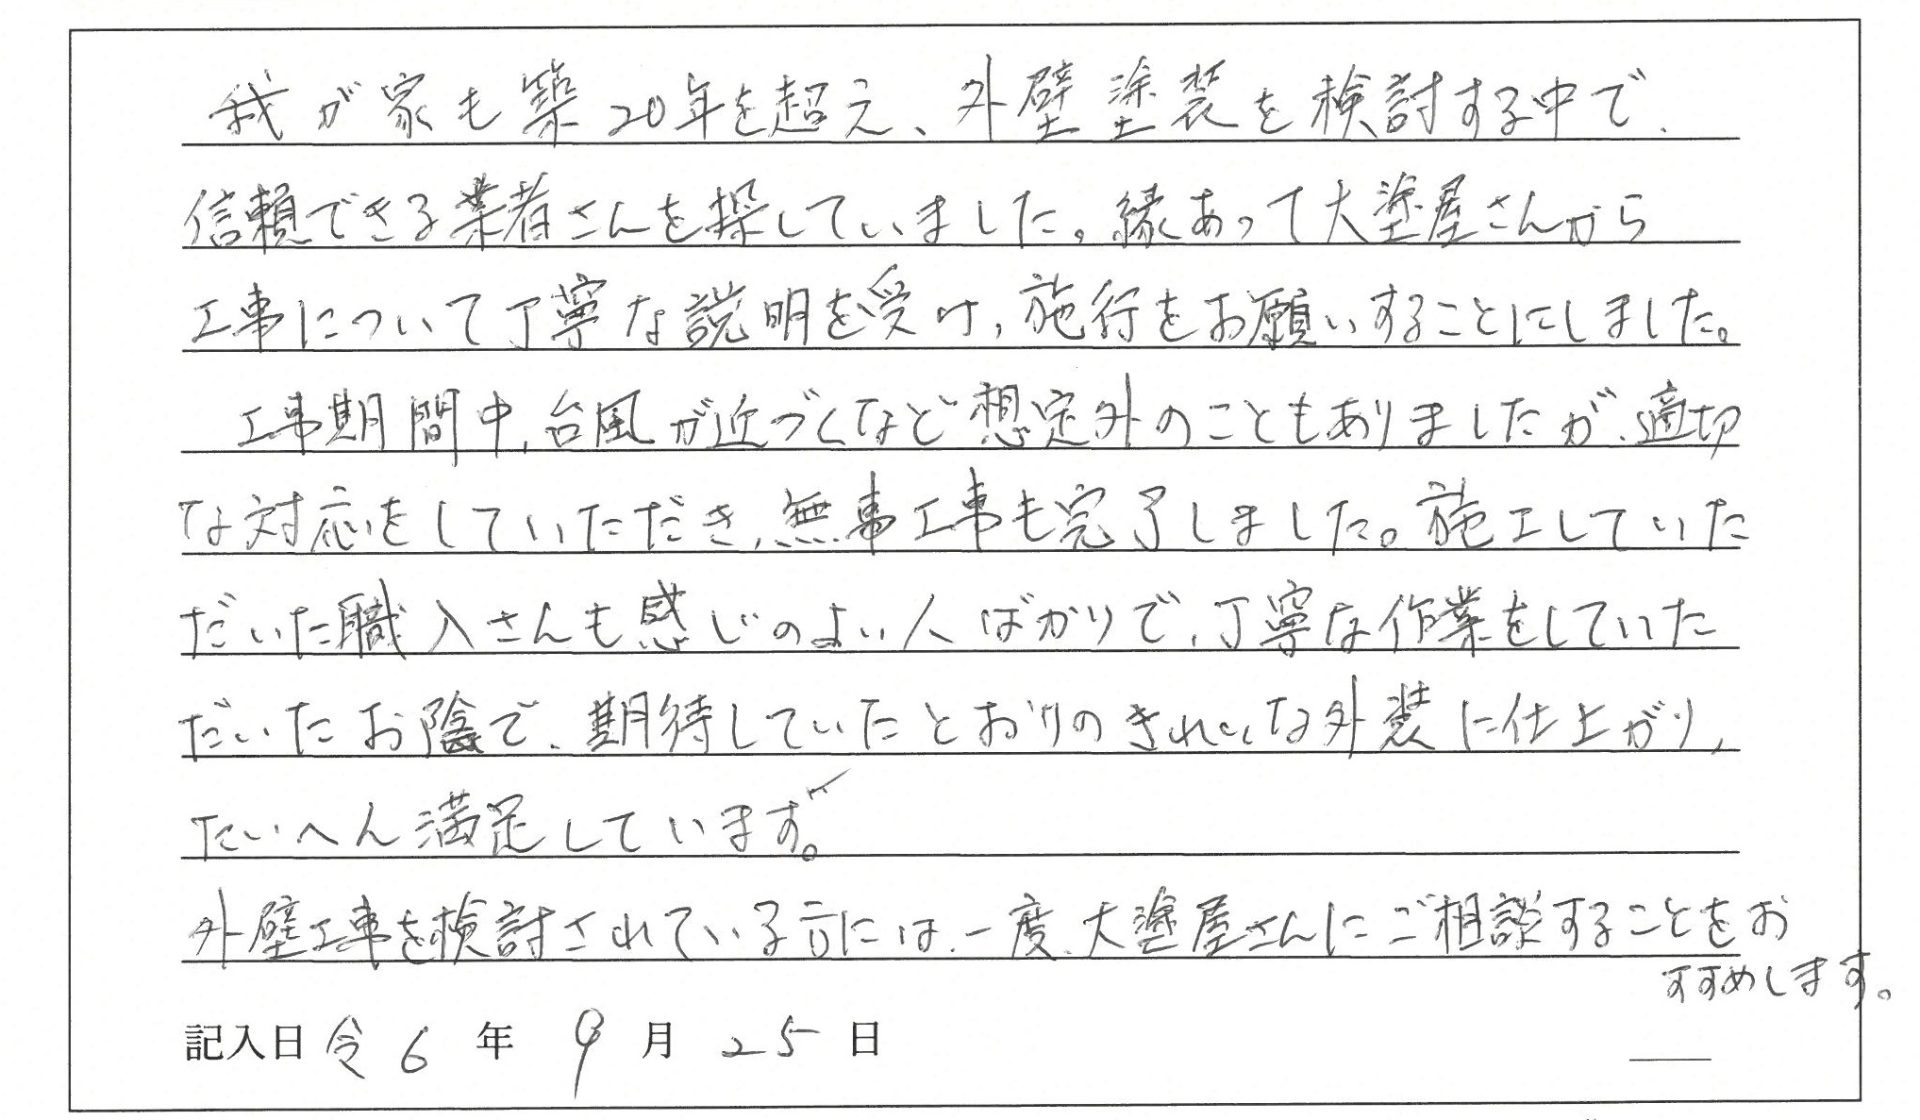 我が家も築20年を超え、外壁塗装を検討する中で、
信頼できる業者さんを探していました。縁あって大塗屋さんから
工事について丁寧な説明を受け、施行をお願いすることにしました。
工事期間中、台風が近づくなど想定外のこともありましたが、適切
な対応をしていただき、無事工事も完了しました。施工していた
だいた職人さんも感じのよい人ばかりで、丁寧な作業をしていた
だいたお陰で、期待していたとおりのきれいな外装に仕上がり、
たいへん満足しています。
外壁工事を検討されている方には、一度、大塗屋さんにご相談することをお
すすめします。
記入日 令6年 9月 25日